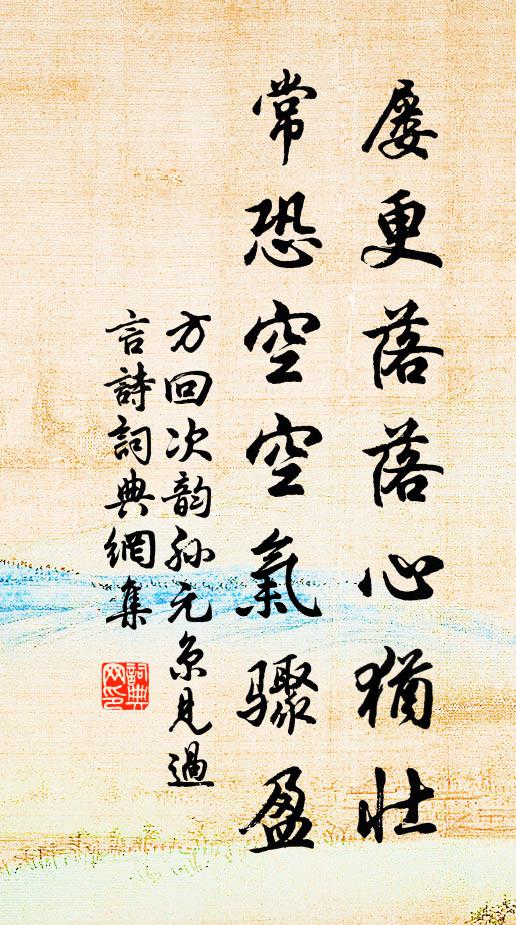 屡更落落心猶壮
常恐空空氣驟盈
方回次韵孙元京見過
言詩詞典網集
詞典
网印